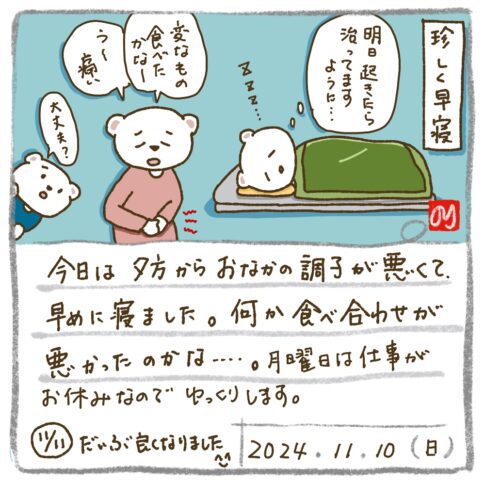 珍しく早寝
明日起きたら
治ってます
ように…
zzz…
変なもの
食べた
かなー
う〜
痛い
大丈夫?
今日は夕方からおなかの調子が悪くて、
早めに寝ました。何か食べ合わせが
悪かったのかな……。月曜日は仕事が
お休みなのでゆっくりします。
11/11 だいぶ良くなりました
2024.11.10(日)